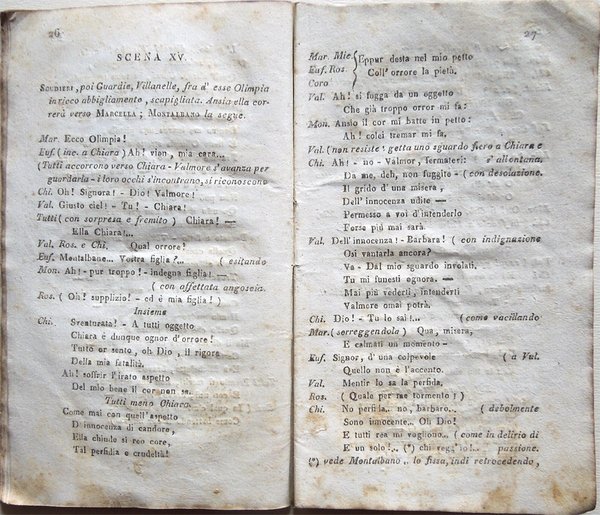 26
SCENA XV.
SCUDIERI, poi Guardie, Villanelle, fra d' esse Olimpia
in ricco abbigliamento, scapigliata. Ansia ella cor-
rerà verso MARCELLA; MONTALBANO la segue.
Mar. Ecco Olimpia!
Euf. (inc. a Chiara) Ah! vien, mia cara...
(Tutti accorrono verso Chiara - Valmore s'avanza per
guardarla - i loro occhi s'incontrano, si riconoscono
Chi. Oh! Signora! - Dio! Valmore!
Val. Giusto ciel! - Tu! - Chiara!
Tutti (con sorpresa e fremito) Chiara! —
Ella Chiara!...
Val. Ros. e Chi. Qual orrore!
Euf. Montalbano... Vostra figlia?... (esitando
Mon. Ah! - pur troppo! - indegna figlia! —
(con affettata angoscia.
Ros. (Oh! supplizio! - ed è mia figlia!)
Insieme
Chi. Sventurata! - A tutti oggetto
Chiara è dunque ognor d'orrore!
Tutto or sento, oh Dio, il rigore
Della mia fatalità.
Ah! soffrir l'irato aspetto
Del mio bene il cor non sa.
Tutti meno Chiara.
Come mai con quell'aspetto
D'innocenza di candore,
Ella chiude sì reo core,
Tal perfidia e crudeltà!
27
Mar. Mic
Euf. Ros.
Coro
Eppur desta nel mio petto
Coll' orrore la pietà.
Val. Ah! si fogga da un oggetto
Che già troppo orror mi fa:
Mon. Ansio il cor mi batte in petto:
Ah! colei tremar mi fa.
Val. (non resiste: getta uno sguardo fiero a Chiara e
s'allontana.
Chi. Ah! - no - Valmor, fermatevi:
Da me, deh, non fuggite - (con desolazione.
Il grido d'una misera,
Dell' innocenza udite —
Permesso a voi d'intenderlo
Forse più mai sarà.
Val. Dell'innocenza! - Barbara! (con indignazione
Osi vantarla ancora?
Va - Dal mio sguardo involati,
Tu mi funesti ognora. —
Mai più vederti, intenderti
Valmore omai potrà.
Chi. Dio! - Tu lo sai!.. (come vacillando
Mar. (sorreggendola) Qua, misera,
E calmati un momento -
Euf. Signor, d'una colpevole (a Val.
Quello non è l'accento.
Val. Mentir lo sa la perfida.
Ros. (Quale per me tormento!)
Chi. No perfida... no, barbaro... (debolmente
Sono innocente... Oh Dio!
E tutti rea mi vogliono... (come in delirio di
E' un solo!.. (*) chi regg'io!... passione.
(*) vede Montalbano.. lo fissa, indi retrocedendo,